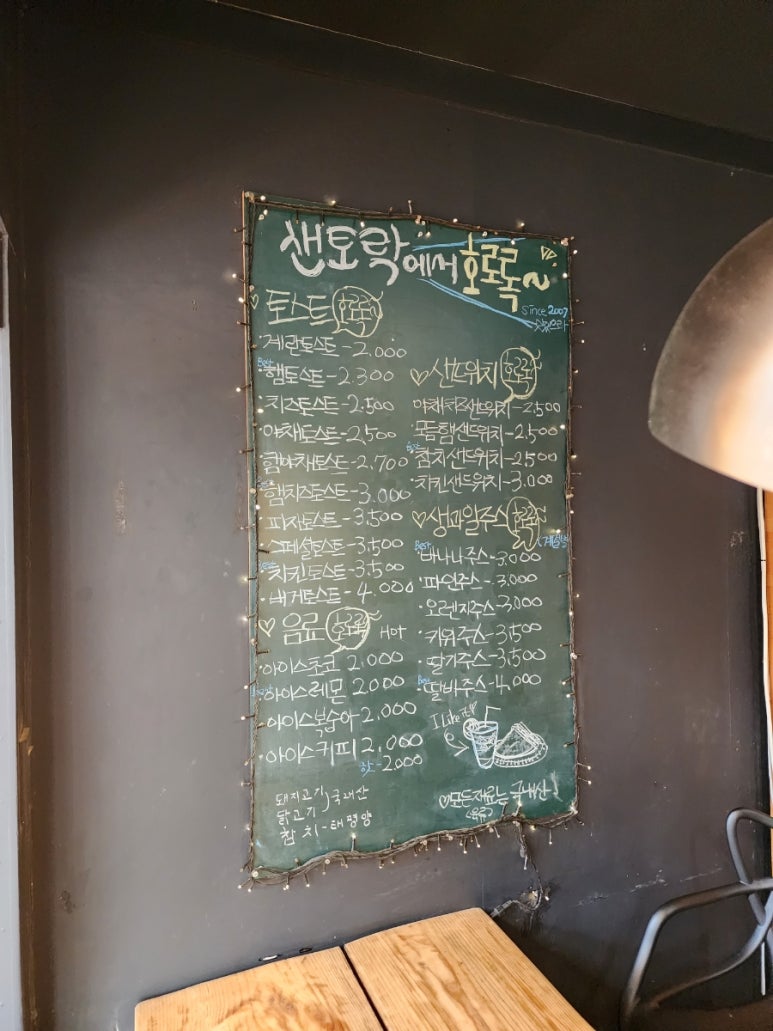 샌토락에서 호로록~
since 2007
♡ 토스트 호로록
·계란토스트-2.000
Best
·햄토스트-2.300
·치즈토스트-2.500
·야채토스트-2.500
·햄야채토스트-2.700
·햄치즈토스트-3.000
·피자토스트-3.500
·스페셜토스트-3.500
·치킨토스트-3.500
·버거토스트-4.000
♡ 음료 호로록 HOT
·아이스초코 2.000
·아이스레몬 2000
·아이스복숭아 2.000
·아이스커피 2.000
핫-2.000
돼지고기 ) 국내산
닭고기
참치-태평양
♡샌드위치 호로록
야채치즈샌드위치-2.500
·모듬햄샌드위치-2.500
·참치샌드위치-2.500
·치킨샌드위치-3.000
♡생과일주스 호로록
Best
·바나나주스-3.000
·파인주스-3.000
·오렌지주스-3.000
·키위주스-3.500
·딸기주스-3.500
Best
·딸바주스-4.000
I like it!
♡모든재료는 국내산!